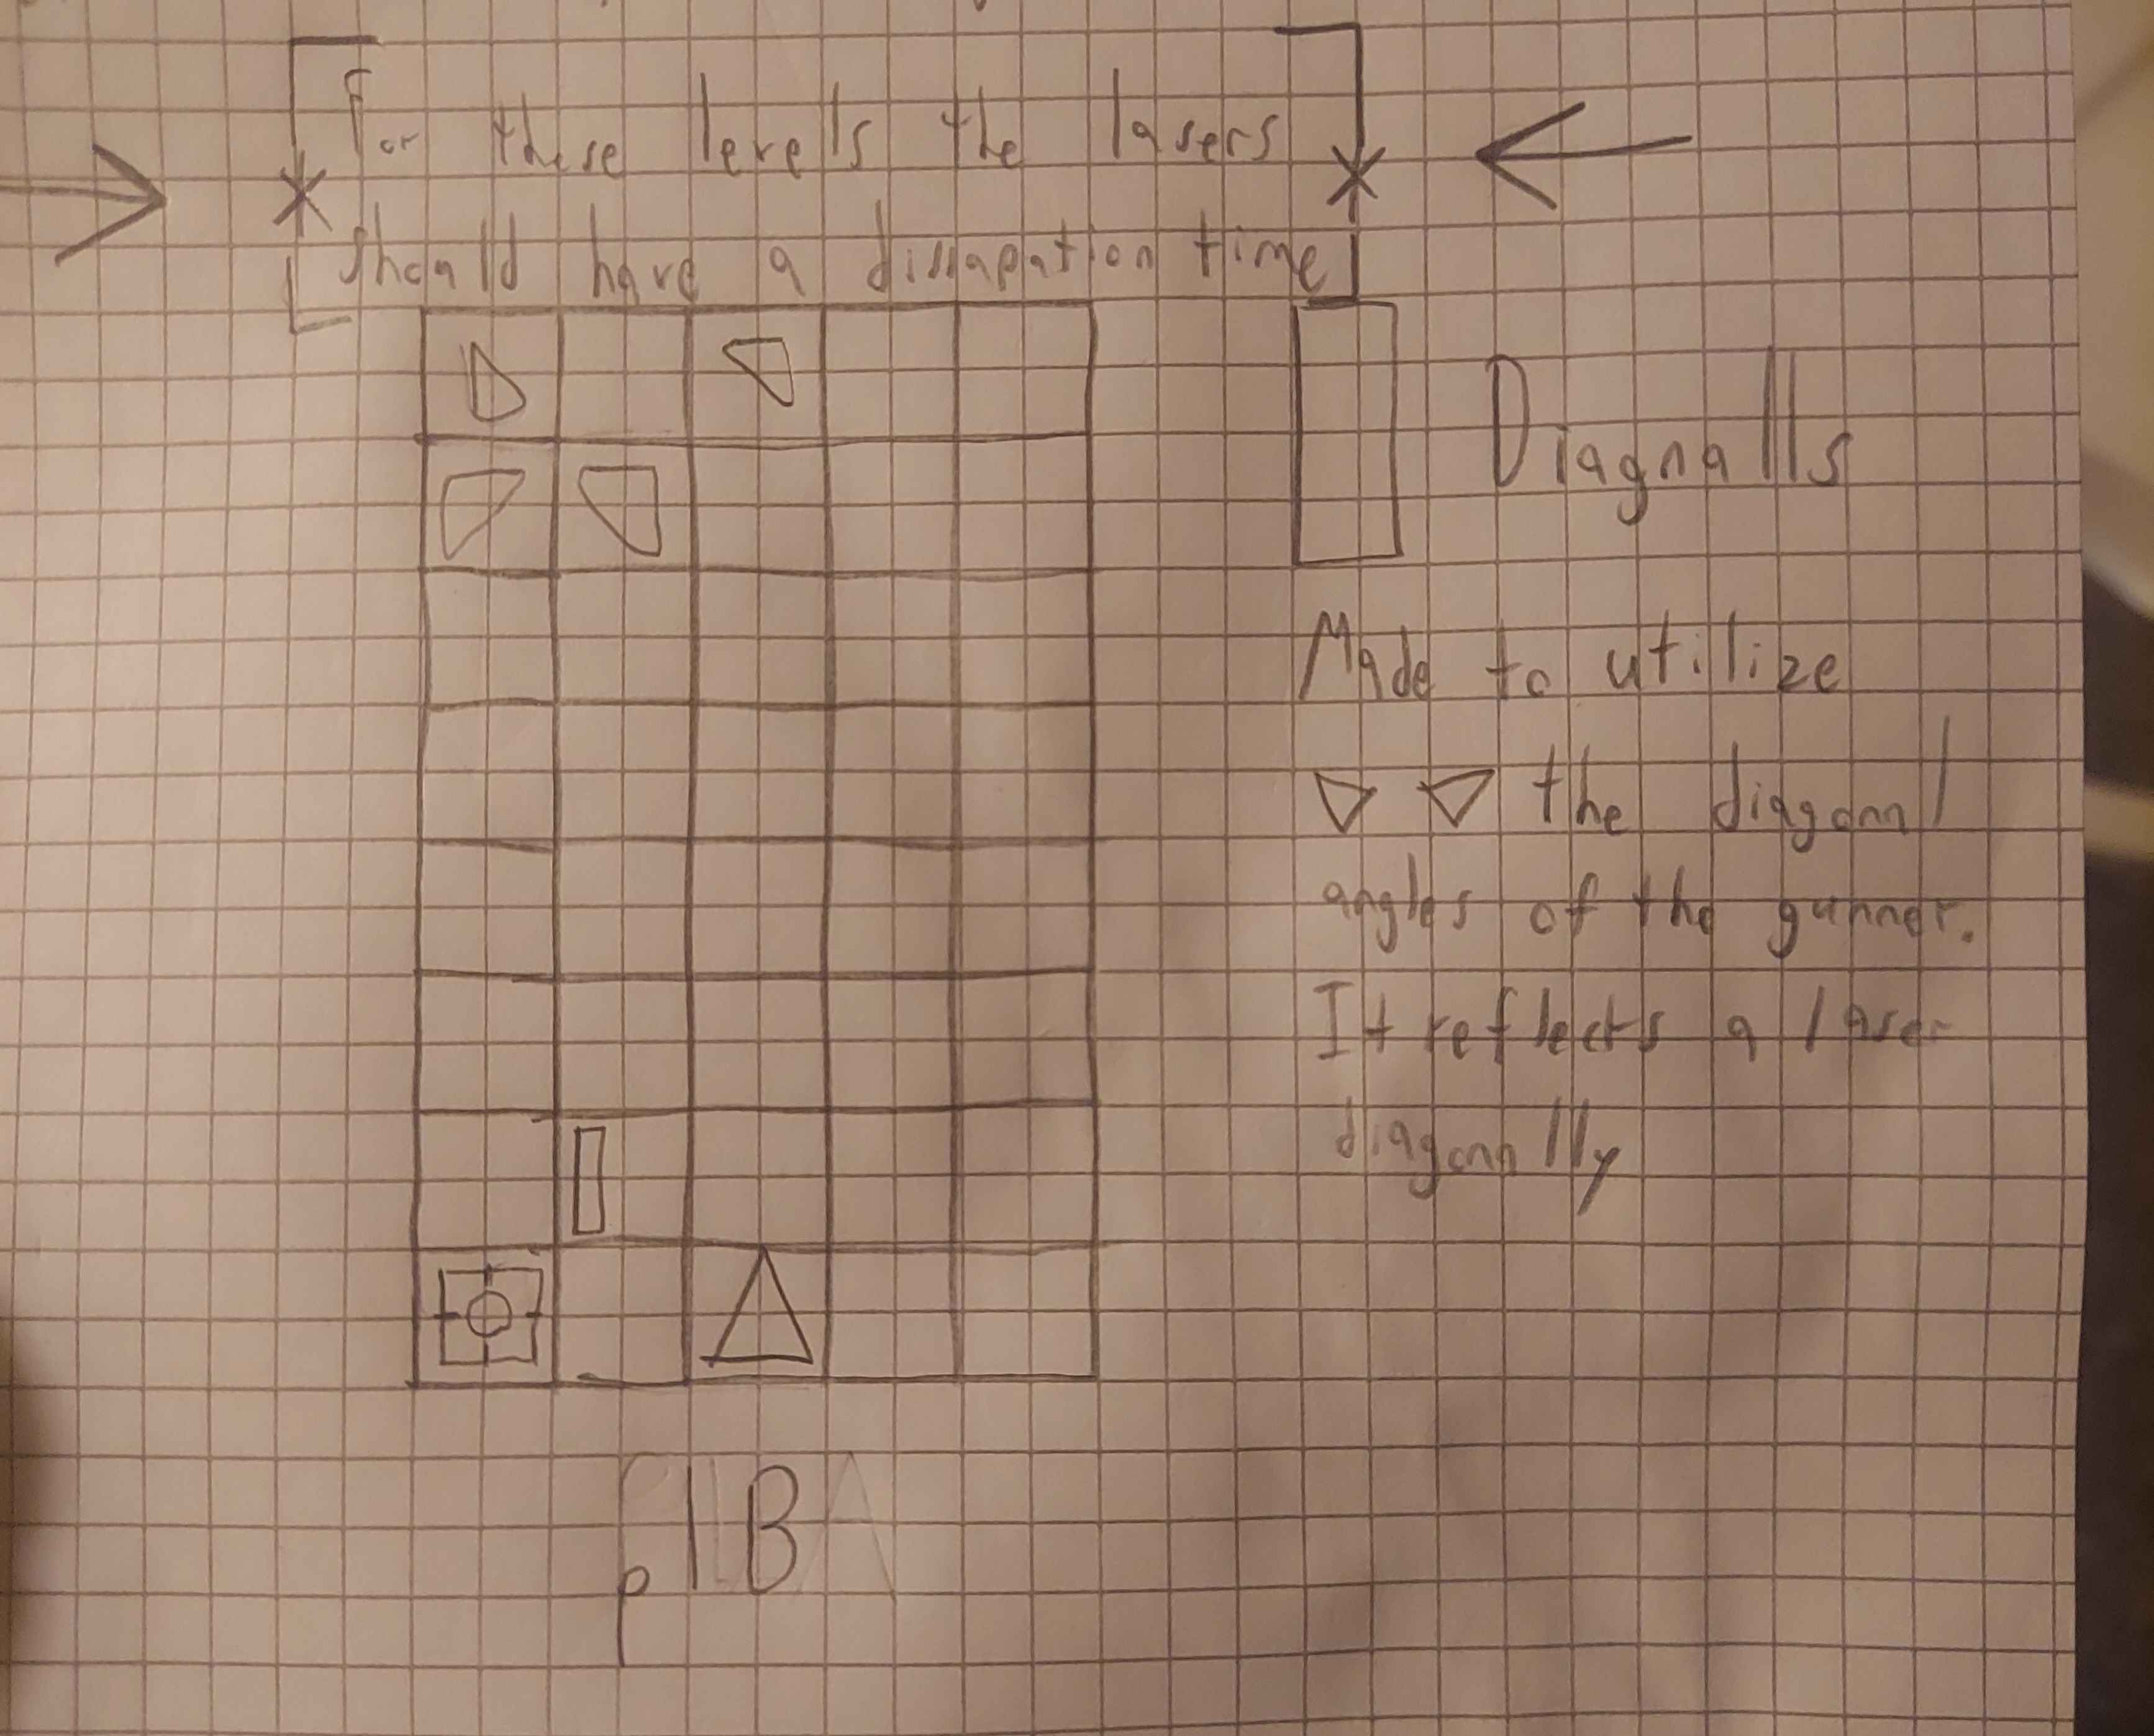 For these levels the lasers
should have a dissapation time
Diagnalls
Made to utilize
the diagonal
angles of the gunner.
It reflects a laser
diagonally
p1B